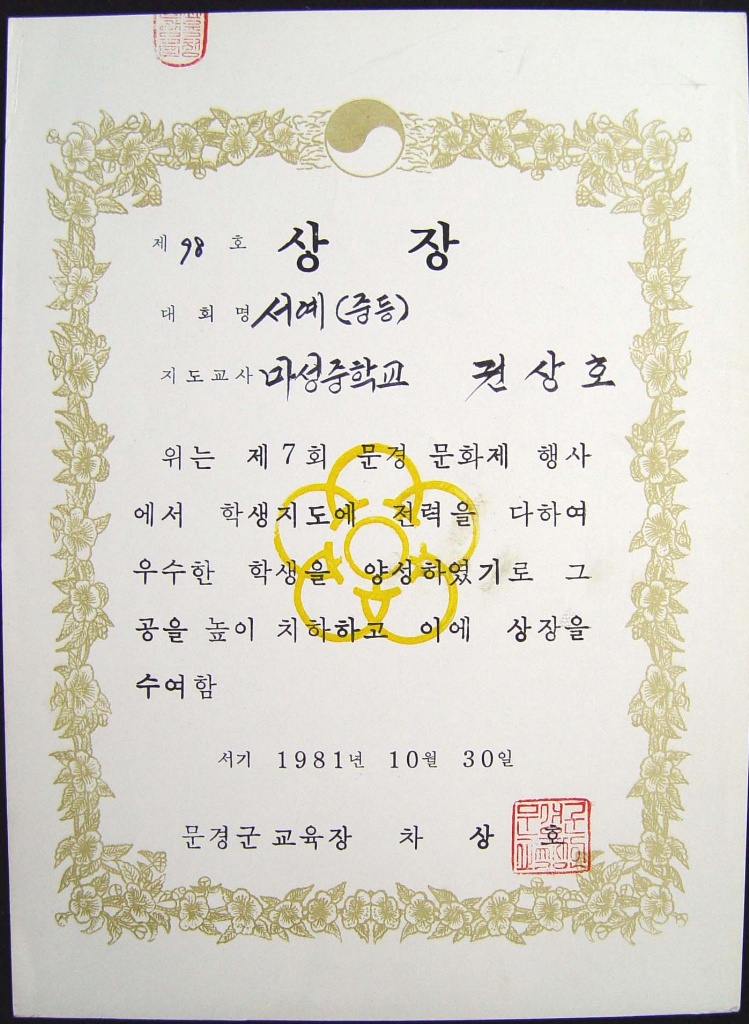 제 98 호 상 장
대 회 명 서예 (중등)
지도교사 마성중학교 권상호
위는 제7회 문경 문화제 행사
에서 학생지도에 전력을 다하여
우수한 학생을 양성하였기로 그
공을 높이 치하하고 이에 상장을
수여함
서기 1981년 10월 30일
문경군 교육장 차 상 호